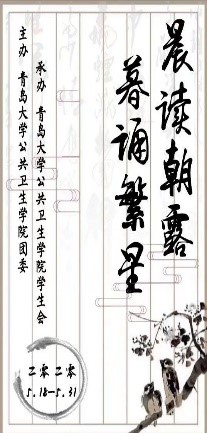 晨读朝露
暮诵繁星
承办 青岛大学公共卫生学院学生会
主办 青岛大学公共卫生学院团委
二零二零
5.18-5.31